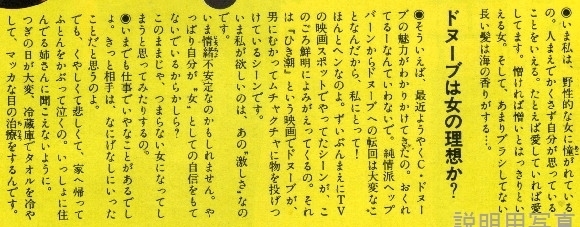 ●いま私は、野性的な女に憧がれている
の。人まえでかくさず自分が思っている
ことをいえる。たとえば愛していれば愛
してます。憎ければ憎いとはっきりとい
える女。そして、あまりブラシしてない
長い髪は海の香りがする…。
ドヌーブは女の理想か?
●そういえば、最近ようやくC・ドヌー
ブの魅力がわかりかけてきたの。おくれ
てるー!なんていわないで。純情派ヘップ
バーンからドヌーブへの転回は大変なこ
となんだから、私にとって!
ほんとヘンなのよ。ずいぶんまえにTV
の映画スポットでやってたシーンが、こ
のごろ鮮明によみがえってくるの。それ
は『ひき潮』という映画でドヌーブが、
男にむかってムチャクチャに物を投げつ
けているシーンです。
いま私が欲しいのは、あの〝激しさ〟なの
です。
いま情緒不安定なのかもしれません。や
っぱり自分が〝女〟としての自信をもて
ないでいるからかしら?
このままじゃ、つまらない女になってし
まうと思ってみたりするの。
●いまでも仕事でいやなことがあるでし
ょ。きっと相手は、なにげなしにいった
ことだと思うのよ。
でも、くやしくて悲しくて、家へ帰って
ふとんをかぶって泣くの。いっしょに住
んでる姉さんに聞こえないように。
つぎの日が大変、冷蔵庫でタオルを冷や
して、マッカな目の治療をするんです。
説明用写真